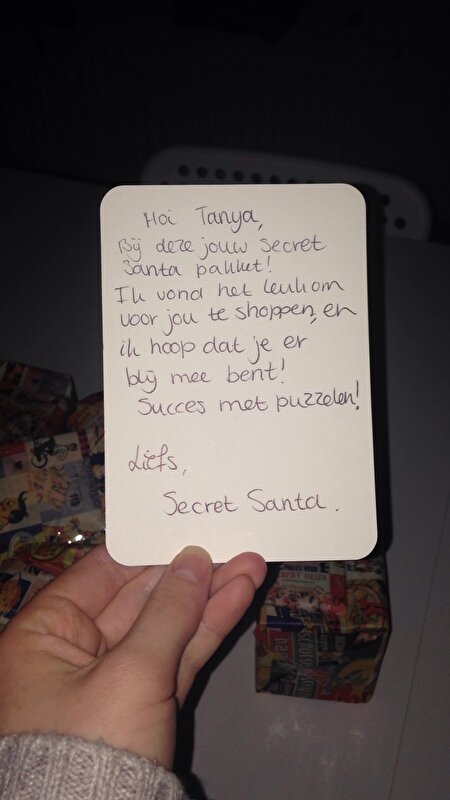 Hoi Tanya,
Bij deze jouw Secret
Santa pakket!
Ik vond het leuk om
voor jou te shoppen, en
ik hoop dat je er
blij mee bent!
Succes met puzzelen!
Liefs,
Secret Santa.